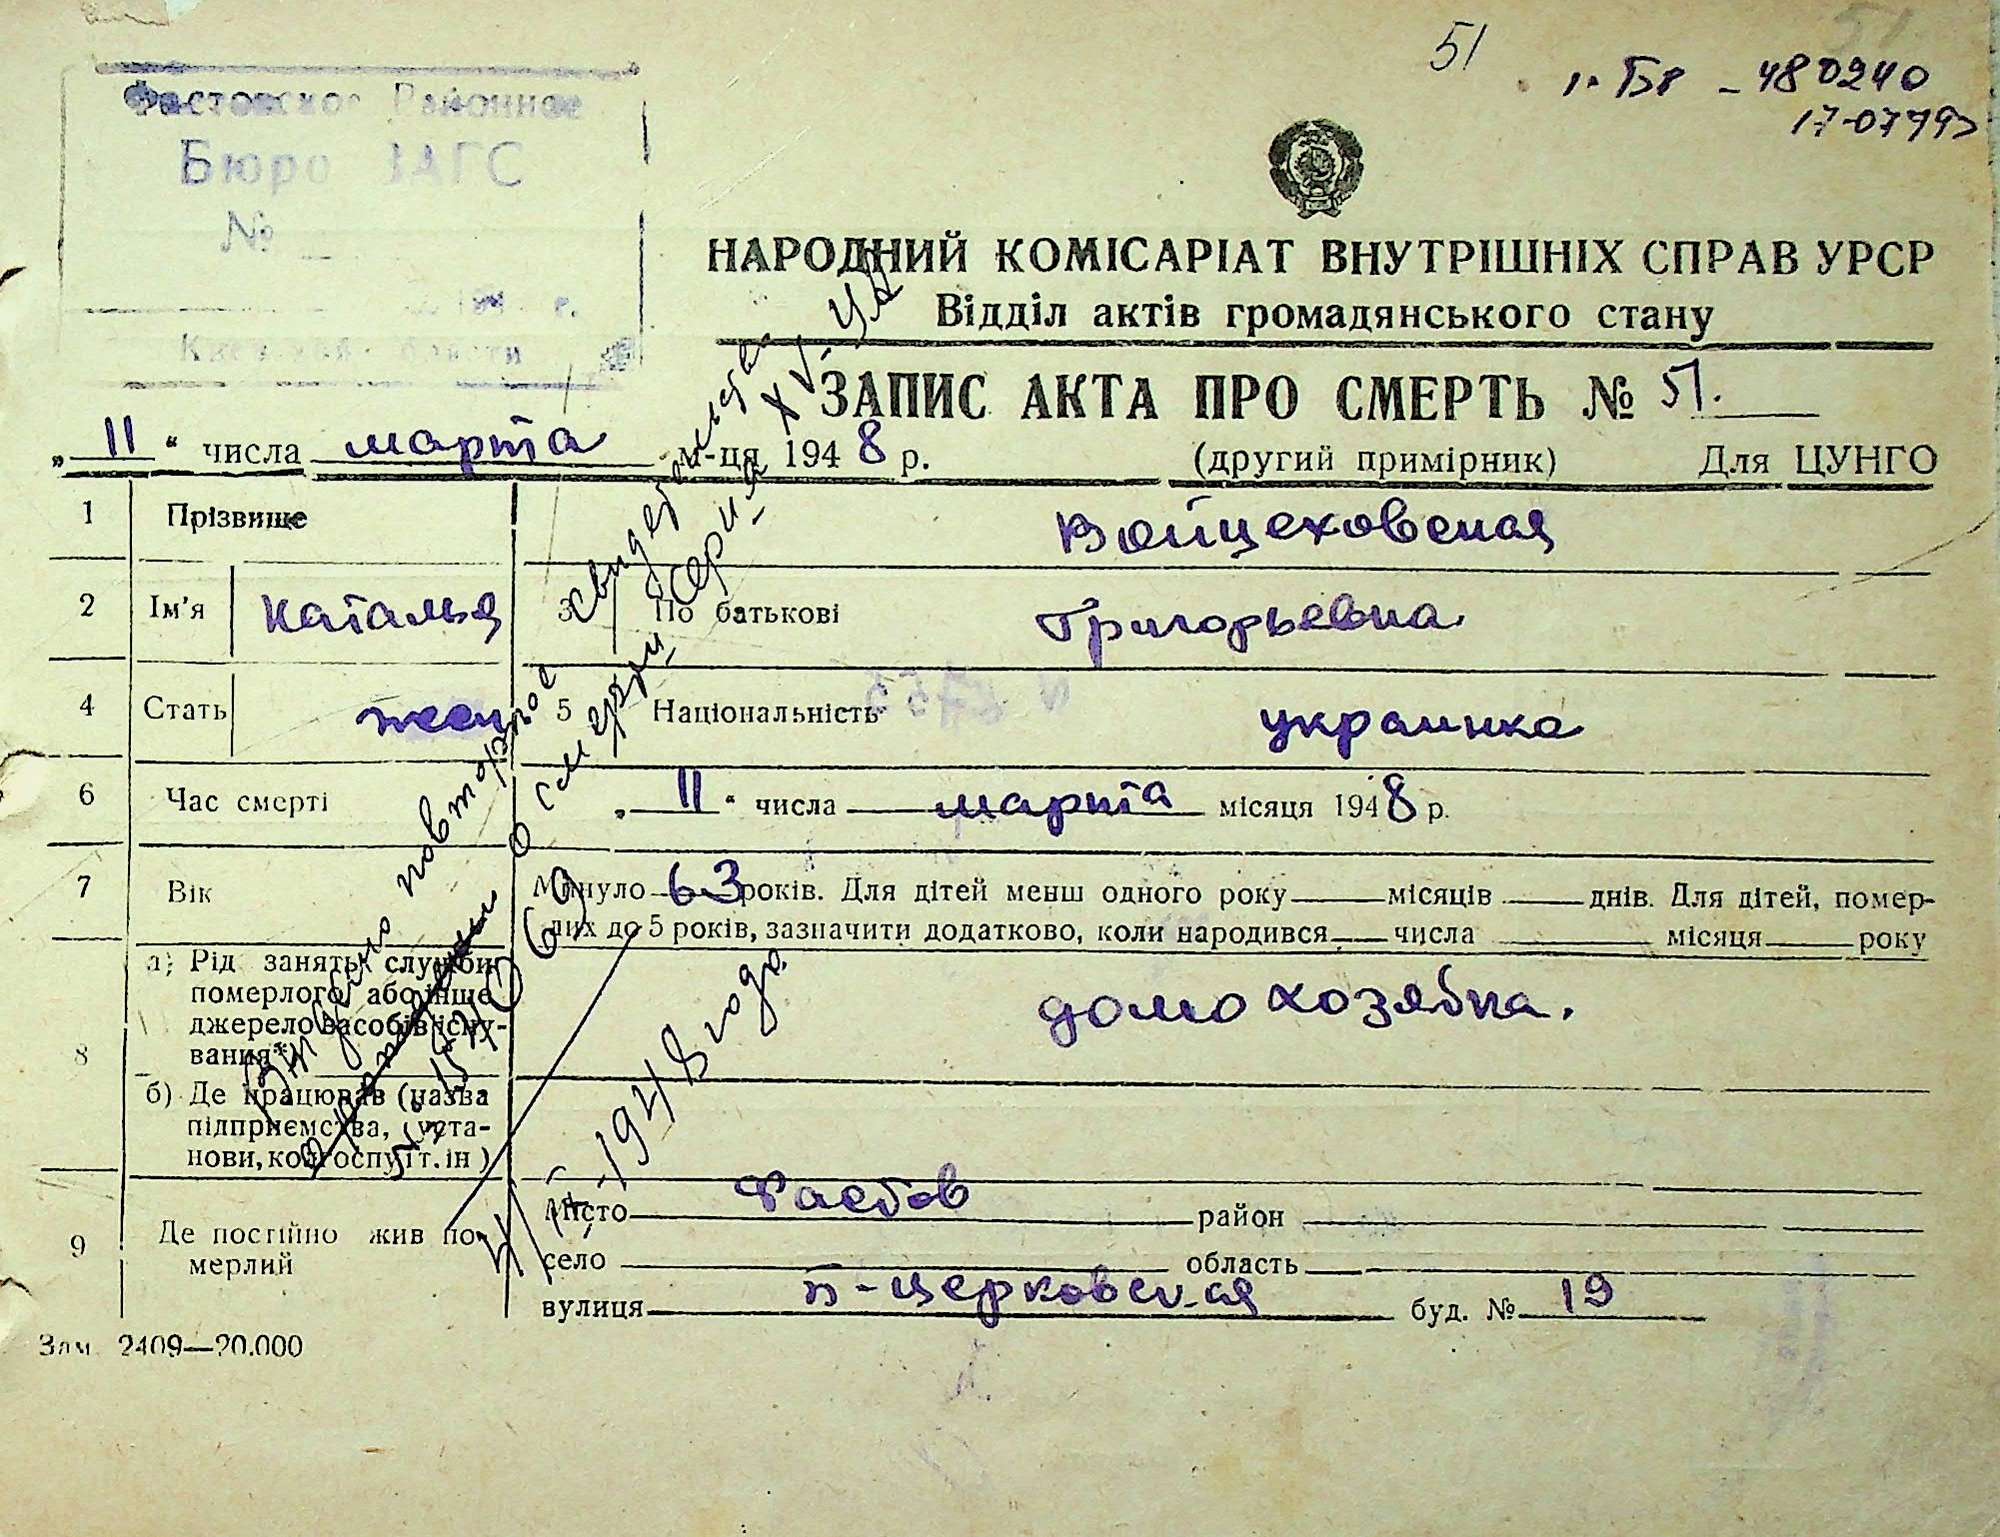 51
1-БК - 480240
Фастовское Районное
Бюро ЗАГС
№
194 г.
Киевской области
НАРОДНИЙ КОМІСАРІАТ ВНУТРІШНІХ СПРАВ УРСР
Відділ актів громадянського стану
ЗАПИС АКТА ПРО СМЕРТЬ № 51.
„ 11 “ числа марта м-ця 1948 р. (другий примірник) Для ЦУНГО
1 Прізвище Войцеховская
2 Ім'я Наталья 3 По батькові Григорьевна
4 Стать жен 5 Національність украинка
6 Час смерті „ 11 “ числа марта місяця 1948 р.
7 Вік Минуло 63 років. Для дітей менш одного року місяців днів. Для дітей, помер-
лих до 5 років, зазначити додатково, коли народився числа місяця року
8 а) Рід занять служби
померлого або інше
джерело засобів існу-
вання*)
домохозяйка.
б) Де працював (назва
підприємства, уста-
нови, колгоспу і т. ін )
9 Де постійно жив по-
мерлий
місто Фастов район
село область
вулиця Б-церковская буд. № 19
Зам. 2409—20.000
Выдано повторное свидетельство
о смерти серия XV-УЛ
1948 года